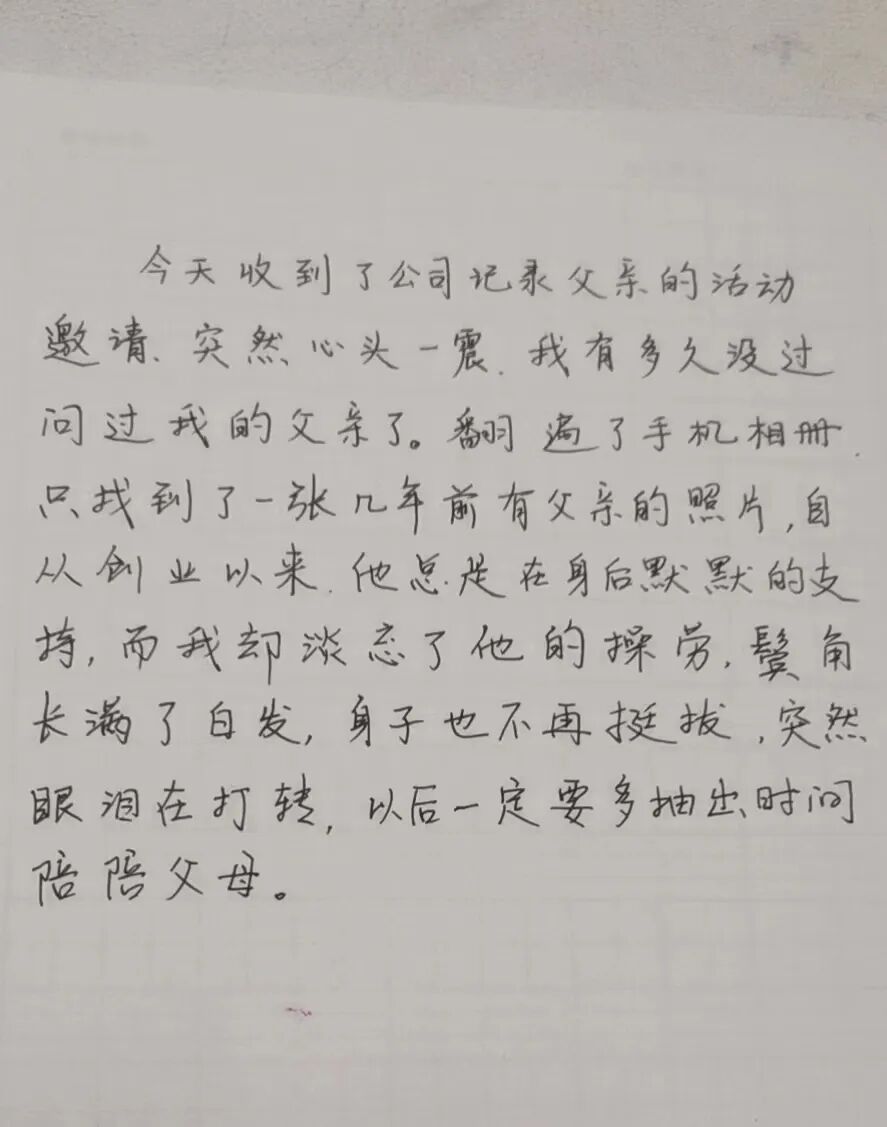 今天收到了公司记录父亲的活动
邀请、突然心头一震、我有多久没过
问过我的父亲了。翻遍了手机相册、
只找到了一张几年前有父亲的照片,自
从创业以来、他总是在身后默默的支
持,而我却淡忘了他的操劳,鬓角
长满了白发,身子也不再挺拔,突然
眼泪在打转,以后一定要多抽出时间
陪陪父母。